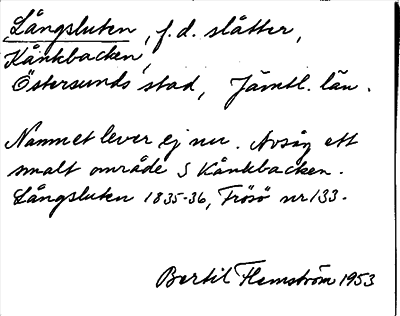 Långsluten, f.d. slåtter,
Kånkbacken,
Östersunds stad, Jämtl. län.
Namnet lever ej nu. Avsåg ett
smalt område S Kånkbacken.
Långsluten 1835-36, Frösö nr 133.
Bertil Flemström 1953